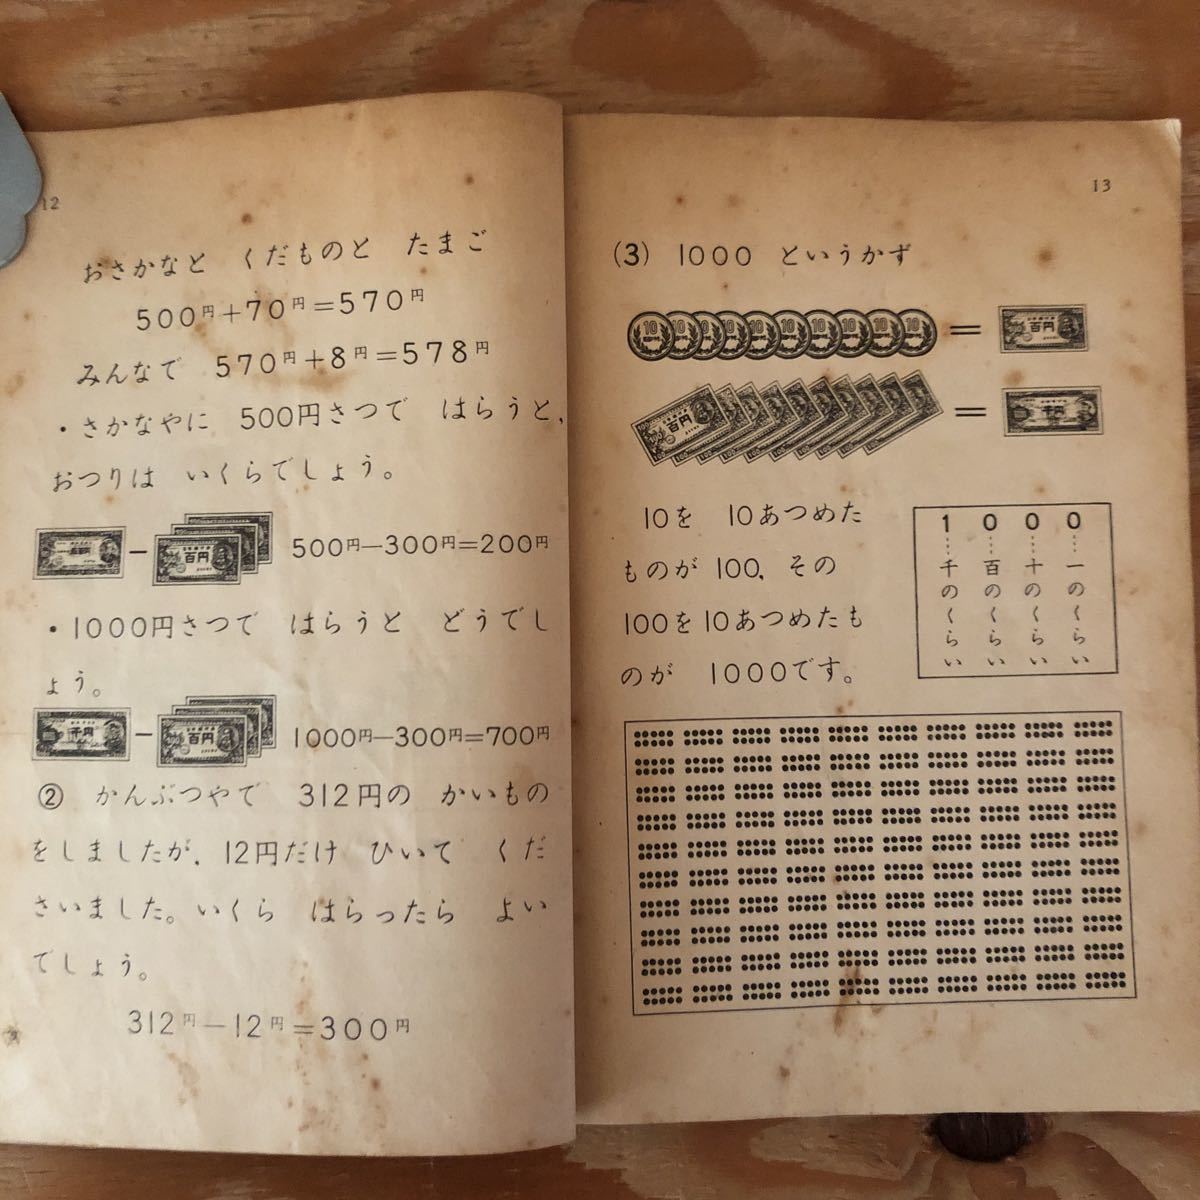 12
おさかなと くだものと たまご
500円+70円=570円
みんなで 570円+8円=578円
・さかなやに 500円さつで はらうと,
おつりは いくらでしょう。
百円
500円-300円=200円
・1000円さつで はらうと どうでし
ょう。
千円
百円
1000円-300円=700円
② かんぶつやで 312円の かいもの
をしましたが, 12円だけ ひいて くだ
さいました。いくら はらったら よい
でしょう。
312円-12円=300円
13
(3) 1000 というかず
10 10 10 10 10 10 10 10 10 10 = 百円
百円 = 千円
10を 10あつめた
ものが 100, その
100を10あつめたも
のが 1000です。
1…千のくらい
0…百のくらい
0…十のくらい
0…一のくらい